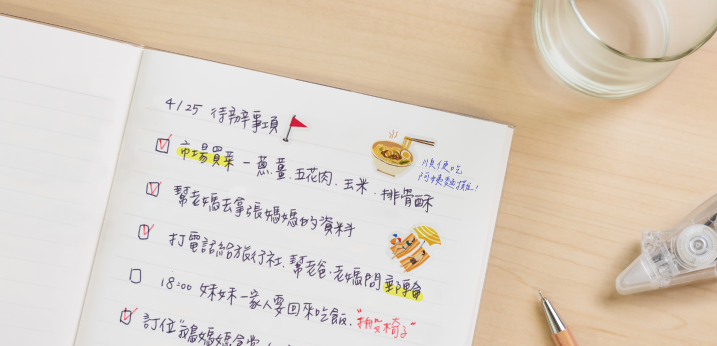 4/25 待辦事項
市場買菜 - 蔥薑.五花肉.玉米.排骨酥
順便吃
阿姨麵攤!
幫老媽去拿張媽媽的資料
打電話給旅行社.幫老爸.老媽問郵輪
18:00 妹妹一家人要回來吃飯."搬椅子"
訂位"鵝媽媽